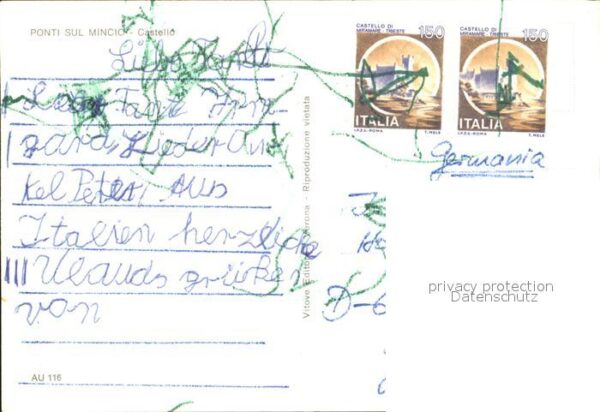 PONTI SUL MINCIO - Castello
Liebe
Tante Irm-
gard Lieder On-
kel Peter. Aus
Italien herzliche
Ulauds grüßen
von
AU 116
Riproduzione vietata
CASTELLO DI
MIRAMARE - TRIESTE
150
ITALIA
I.P.Z.S.-ROMA
T. MELE
CASTELLO DI
MIRAMARE - TRIESTE
150
ITALIA
I.P.Z.S.-ROMA
T. MELE
Germania
D-6
privacy protection
Datenschutz